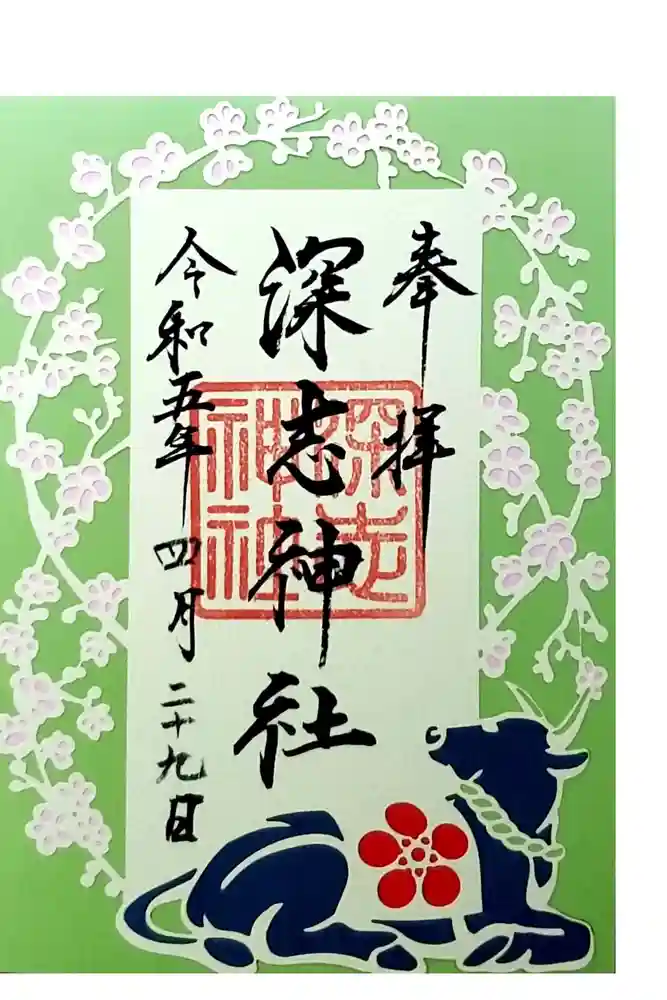 奉拝
深志神社
深志
神社
令和五年四月二十九日